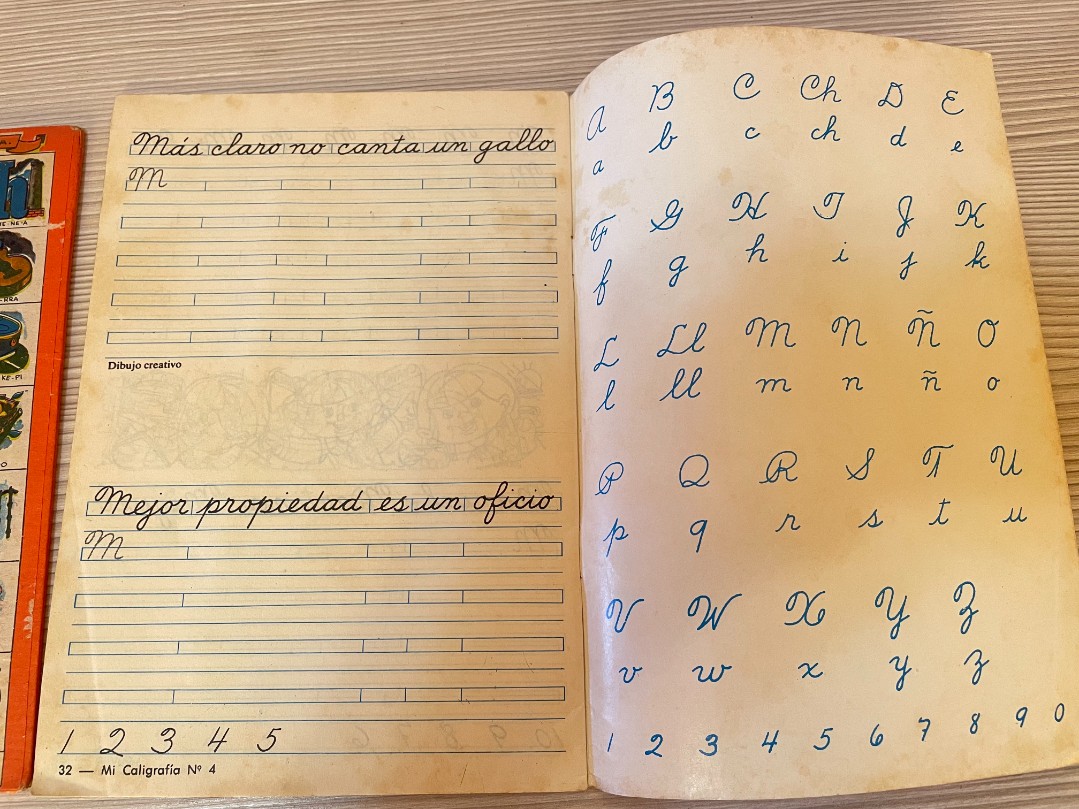 Más claro no canta un gallo
M
Dibujo creativo
Mejor propiedad es un oficio
M
1 2 3 4 5
32 — Mi Caligrafía Nº 4
A B C Ch D E
a b c ch d e
F G H I J K
f g h i j k
L Ll M N Ñ O
l ll m n ñ o
P Q R S T U
p q r s t u
V W X Y Z
v w x y z
1 2 3 4 5 6 7 8 9 0
KE-PI